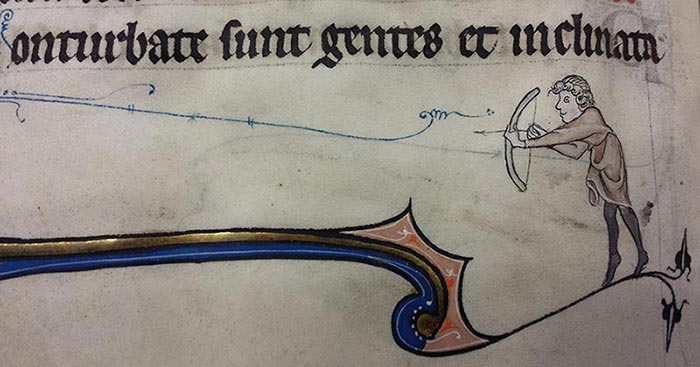 onturbate sunt gentes et inclinata